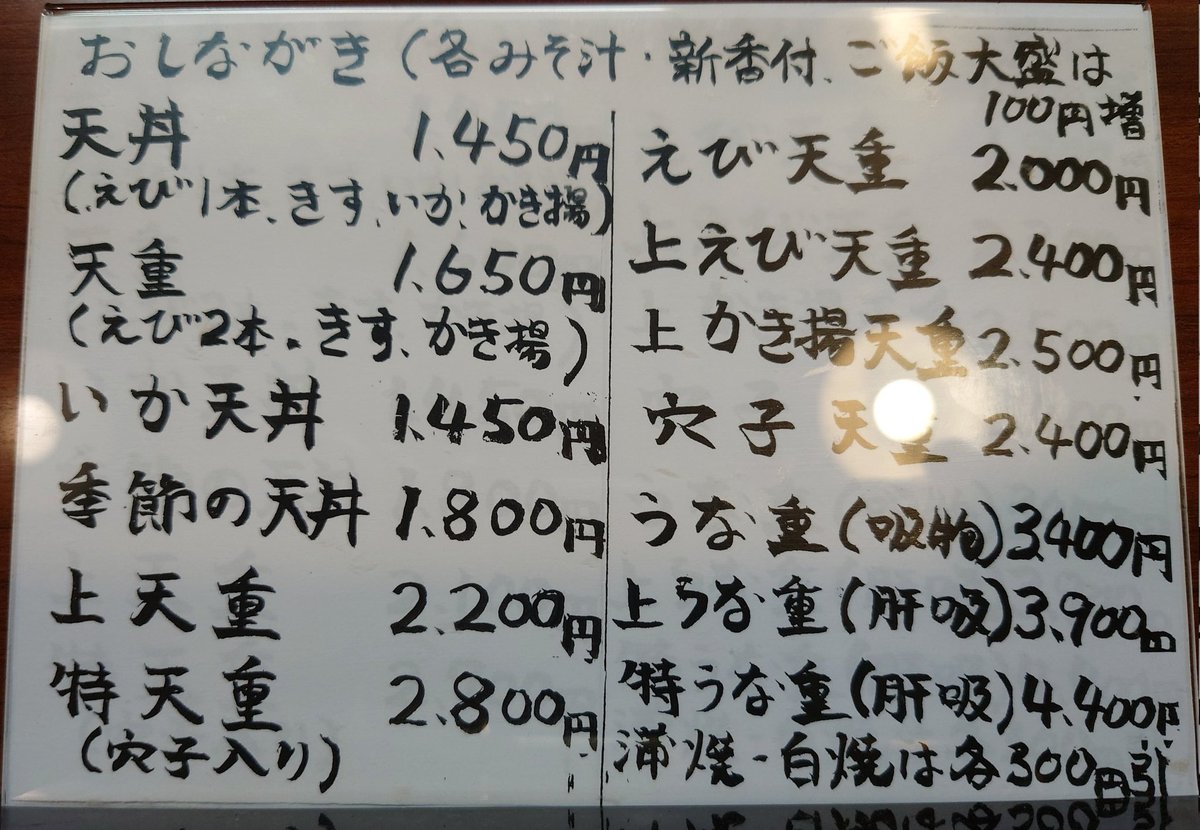 おしながき(各みそ汁・新香付、ご飯大盛は
100円増
天丼 1.450円
(えび1本、きす、いか、かき揚)
天重 1.650円
(えび2本、きす、かき揚)
いか天丼 1.450円
季節の天丼 1.800円
上天重 2.200円
特天重 2.800円
(穴子入り)
えび天重 2.000円
上えび天重 2.400円
上かき揚天重 2.500円
穴子天重 2.400円
うな重(吸物)3.400円
上うな重(肝吸)3.900円
特うな重(肝吸)4.400円
蒲焼・白焼は各300円引